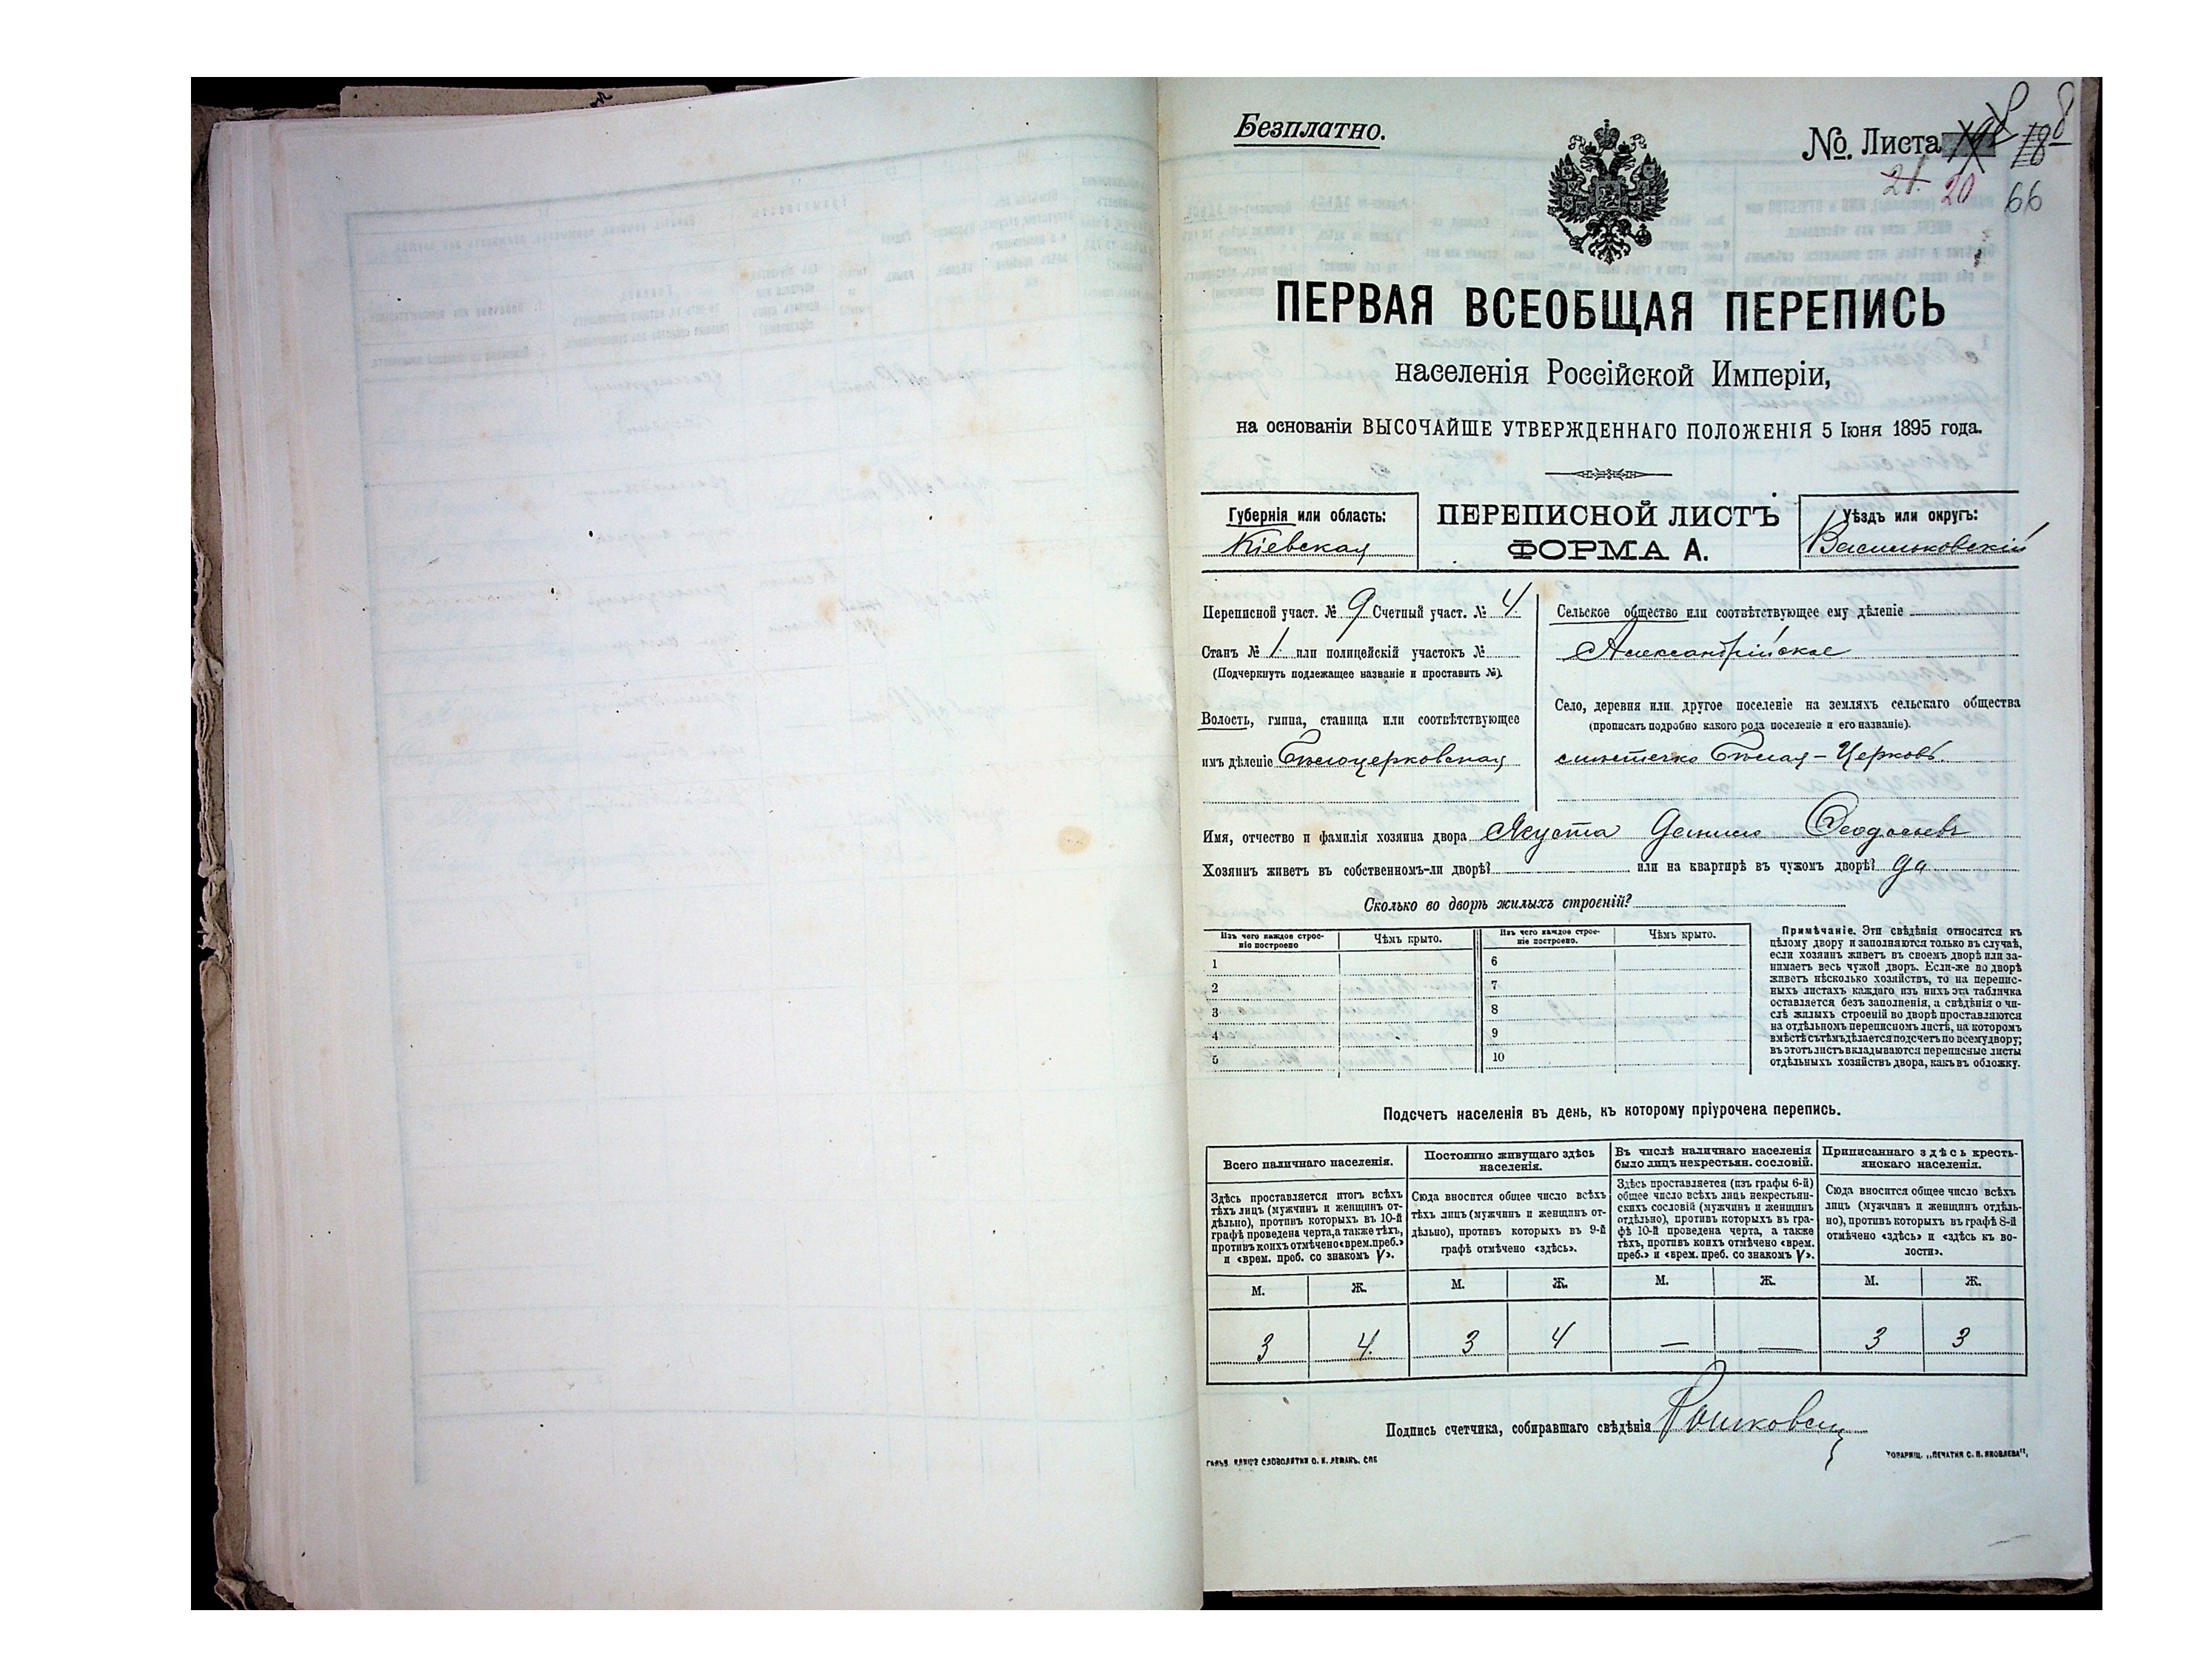 Безплатно.
№. Листа
21. 20 66
ПЕРВАЯ ВСЕОБЩАЯ ПЕРЕПИСЬ
населенія Россійской Имперіи,
на основаніи ВЫСОЧАЙШЕ УТВЕРЖДЕННАГО ПОЛОЖЕНІЯ 5 Іюня 1895 года.
Губернія или область:
Кіевская
ПЕРЕПИСНОЙ ЛИСТЪ
ФОРМА А.
Уѣздъ или округъ:
Васильковскій
Переписной участ. № 9 Счетный участ. № 4.
Станъ № 1. или полицейскій участокъ №
(Подчеркнуть подлежащее названіе и проставить №).
Волость, гмина, станица или соотвѣтствующее
имъ дѣленіе Бѣлоцерковская
Сельское общество или соотвѣтствующее ему дѣленіе
Александрійское
Село, деревня или другое поселеніе на земляхъ сельскаго общества
(прописать подробно какого рода поселеніе и его названіе).
мѣстечко Бѣлая-Церковь.
Имя, отчество и фамилія хозяина двора Якуста Данило Феодосьевъ
Хозяинъ живетъ въ собственномъ-ли дворѣ? или на квартирѣ въ чужомъ дворѣ? да
Сколько во дворѣ жилыхъ строеній?
Изъ чего каждое строе-
ніе построено
Чѣмъ крыто.
Изъ чего каждое строе-
ніе построено.
Чѣмъ крыто.
1 6
2 7
3 8
4 9
5 10
Примѣчаніе. Эти свѣдѣнія относятся къ
цѣлому двору и заполняются только въ случаѣ,
если хозяинъ живетъ въ своемъ дворѣ или за-
нимаетъ весь чужой дворъ. Если-же во дворѣ
живетъ нѣсколько хозяйствъ, то на перепис-
ныхъ листахъ каждаго изъ нихъ эта табличка
оставляется безъ заполненія, а свѣдѣнія о чи-
слѣ жилыхъ строеній во дворѣ проставляются
на отдѣльномъ переписномъ листѣ, на которомъ
вмѣстѣ съ тѣмъ дѣлается подсчетъ по всему двору;
въ этотъ листъ вкладываются переписные листы
отдѣльныхъ хозяйствъ двора, какъ въ обложку.
Подсчетъ населенія въ день, къ которому пріурочена перепись.
Всего наличнаго населенія.
Здѣсь проставляется итогъ всѣхъ
тѣхъ лицъ (мужчинъ и женщинъ от-
дѣльно), противъ которыхъ въ 10-й
графѣ проведена черта, а также тѣхъ,
противъ коихъ отмѣчено «врем. преб.»
и «врем. преб. со знакомъ V».
Постоянно живущаго здѣсь
населенія.
Сюда вносится общее число всѣхъ
тѣхъ лицъ (мужчинъ и женщинъ от-
дѣльно), противъ которыхъ въ 9-й
графѣ отмѣчено «здѣсь».
Въ числѣ наличнаго населенія
было лицъ некрестьян. сословій.
Здѣсь проставляется (изъ графы 6-й)
общее число всѣхъ лицъ некрестьян-
скихъ сословій (мужчинъ и женщинъ
отдѣльно), противъ которыхъ въ гра-
фѣ 10-й проведена черта, а также
тѣхъ, противъ коихъ отмѣчено «врем.
преб.» и «врем. преб. со знакомъ V».
Приписаннаго здѣсь кресть-
янскаго населенія.
Сюда вносится общее число всѣхъ
лицъ (мужчинъ и женщинъ отдѣль-
но), противъ которыхъ въ графѣ 8-й
отмѣчено «здѣсь» и «здѣсь къ во-
лости».
М. Ж. М. Ж. М. Ж. М. Ж.
3 4. 3 4 — — 3 3
Подпись счетчика, собиравшаго свѣдѣнія
СЛОВОЛИТНИ О. И. ЛЕМАНЪ, СПБ
ТОВАРИЩ. „ПЕЧАТНЯ С. П. ЯКОВЛЕВА“.